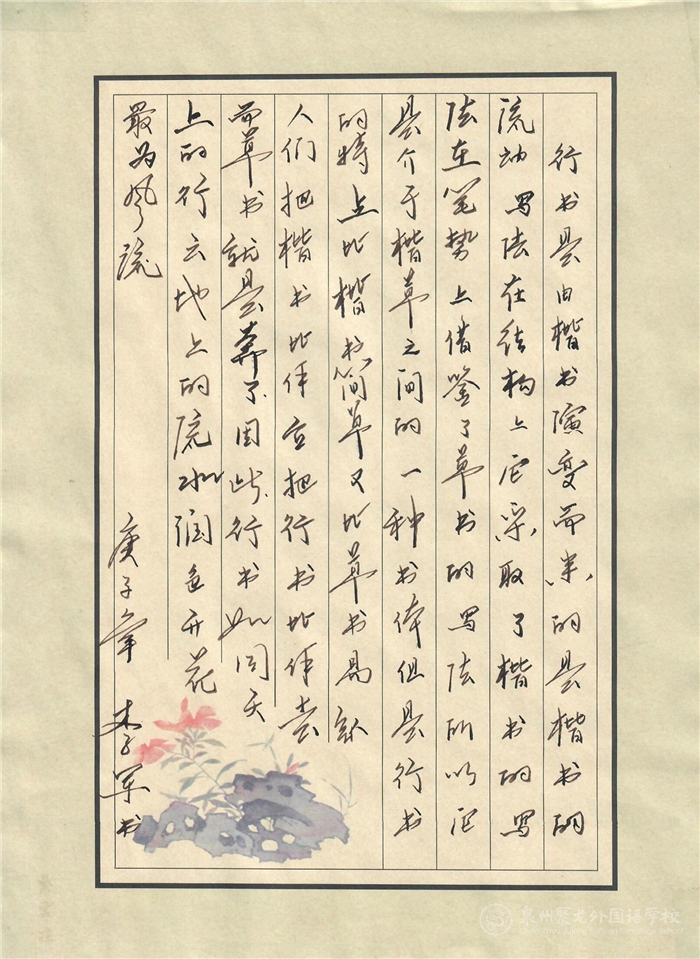 行书是由楷书演变而来的是楷书的
流动写法在结构上它采取了楷书的写
法在笔势上借鉴了草书的写法所以它
是介于楷草之间的一种书体但是行书
的特点比楷书简草又比草书易认
人们把楷书比作立把行书比作走
而草书就是奔了因此行书如同天
上的行云地上的流水润色开花
最为风流
庚子年 李军书
泉州聚龙外国语学校